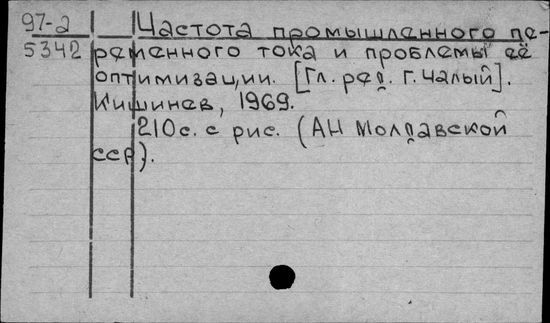 97-2 Частота промышленного пе-
5342 ременного тока и проблемы её
оптимизации. [Гл. ред. Г. Чалый].
Кишинев, 1969.
210с. с рис. (АН Молдавской
ССР).